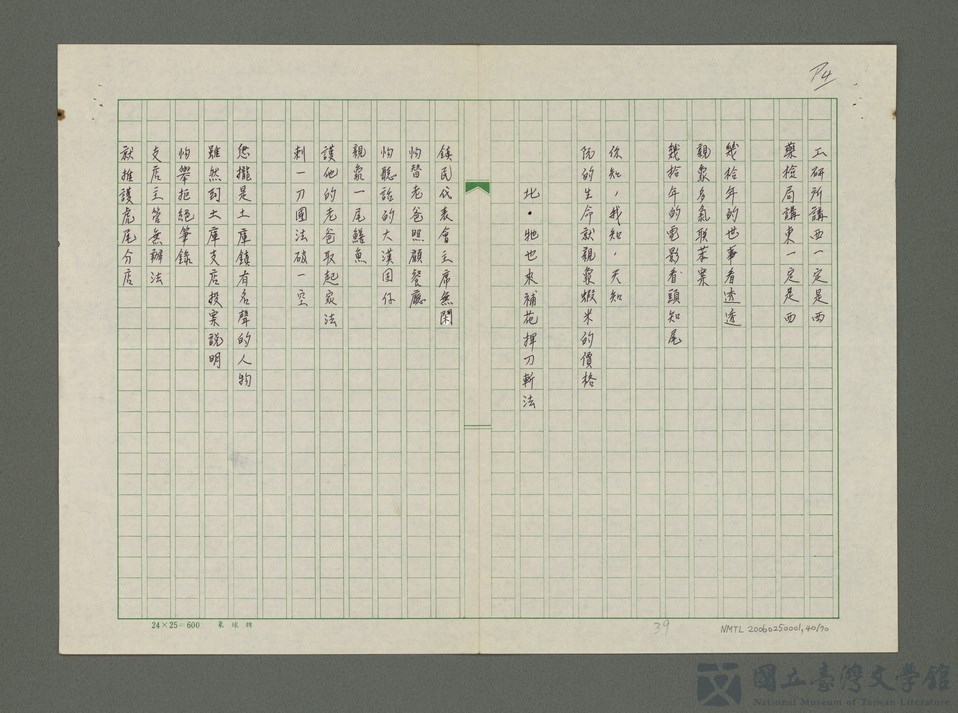 P4
工研所講西一定是西
藥檢局講東一定是西
幾拾年的世事看透透
親象多氯聯苯案
幾拾年的電影看頭知尾
你知,我知,天知
阮的生命就親象蝦米的價格
北・牠也來補花揮刀斬法
鎮民代表會主席無閑
怐替老爸照顧餐廳
怐聽話的大漢囝仔
親象一尾鱔魚
護他的老爸取起家法
刺一刀國法破一空
您攏是土庫鎮有名聲的人物
雖然到土庫支店投票說明
怐舉拒絕筆錄
支店主管無辦法
就推護虎尾分店
24×25=600
39
NMTL 20060250001, 40/70
國立臺灣文學館
National Museum of Taiwan Literature